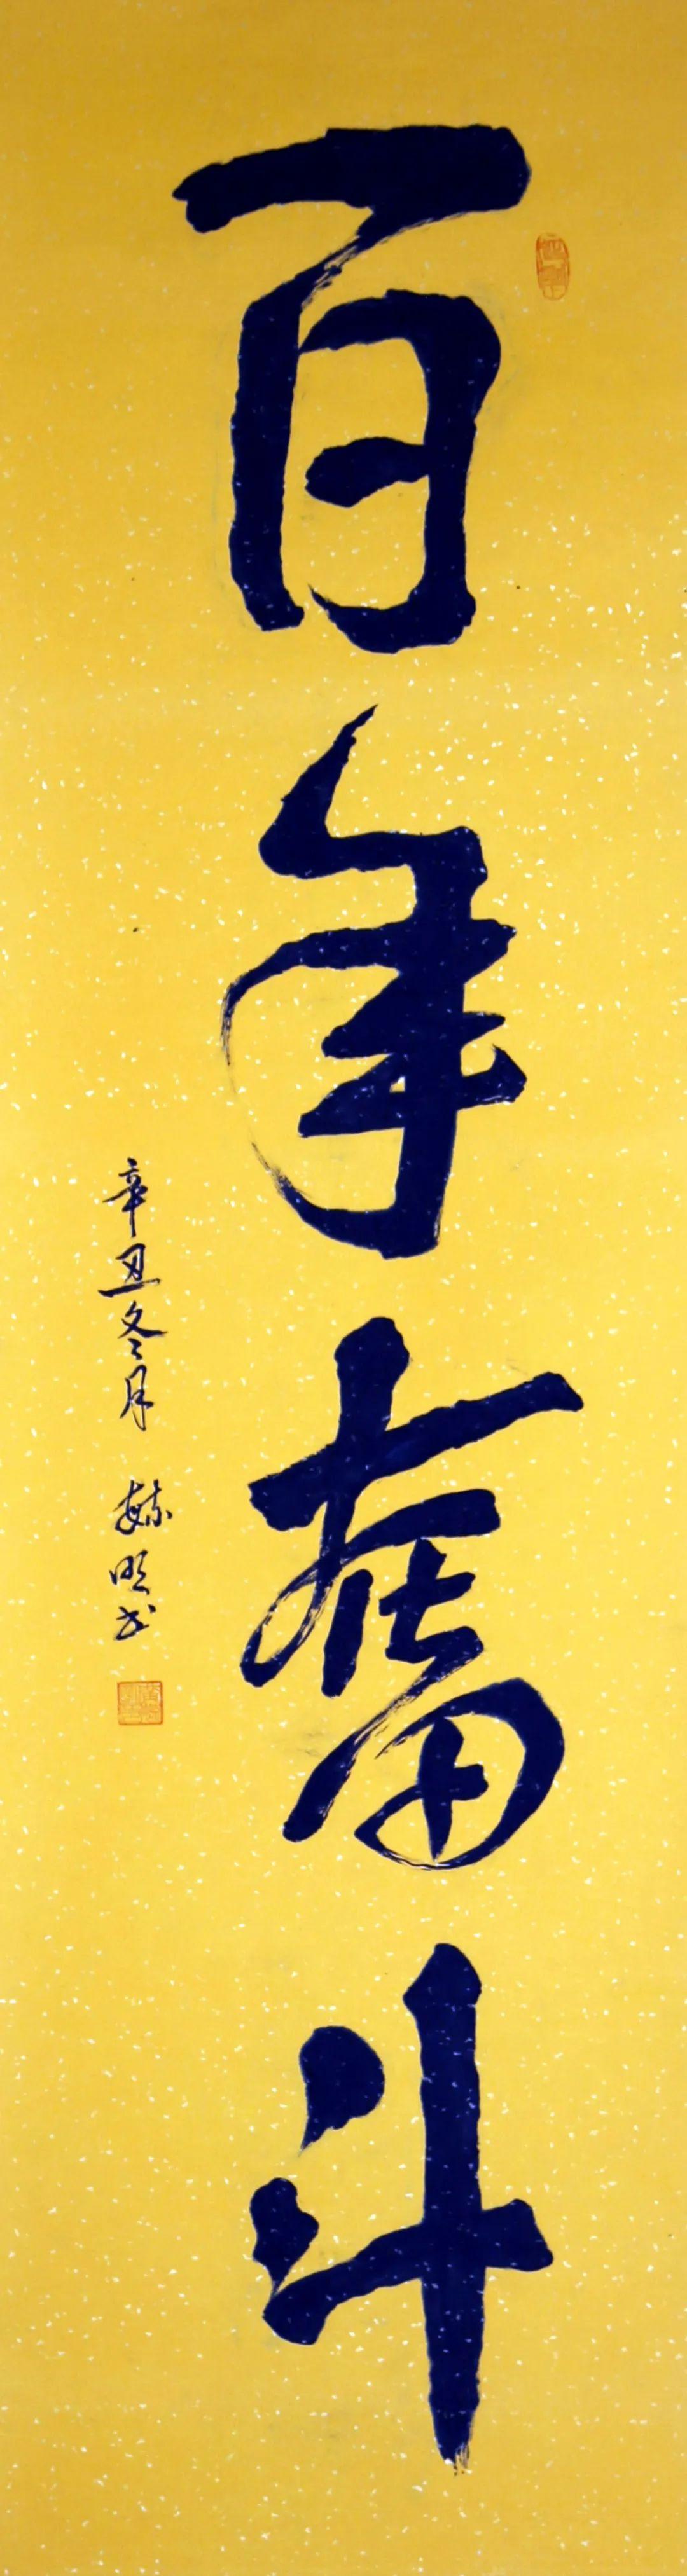 百年奮斗
辛丑冬月 毓明书